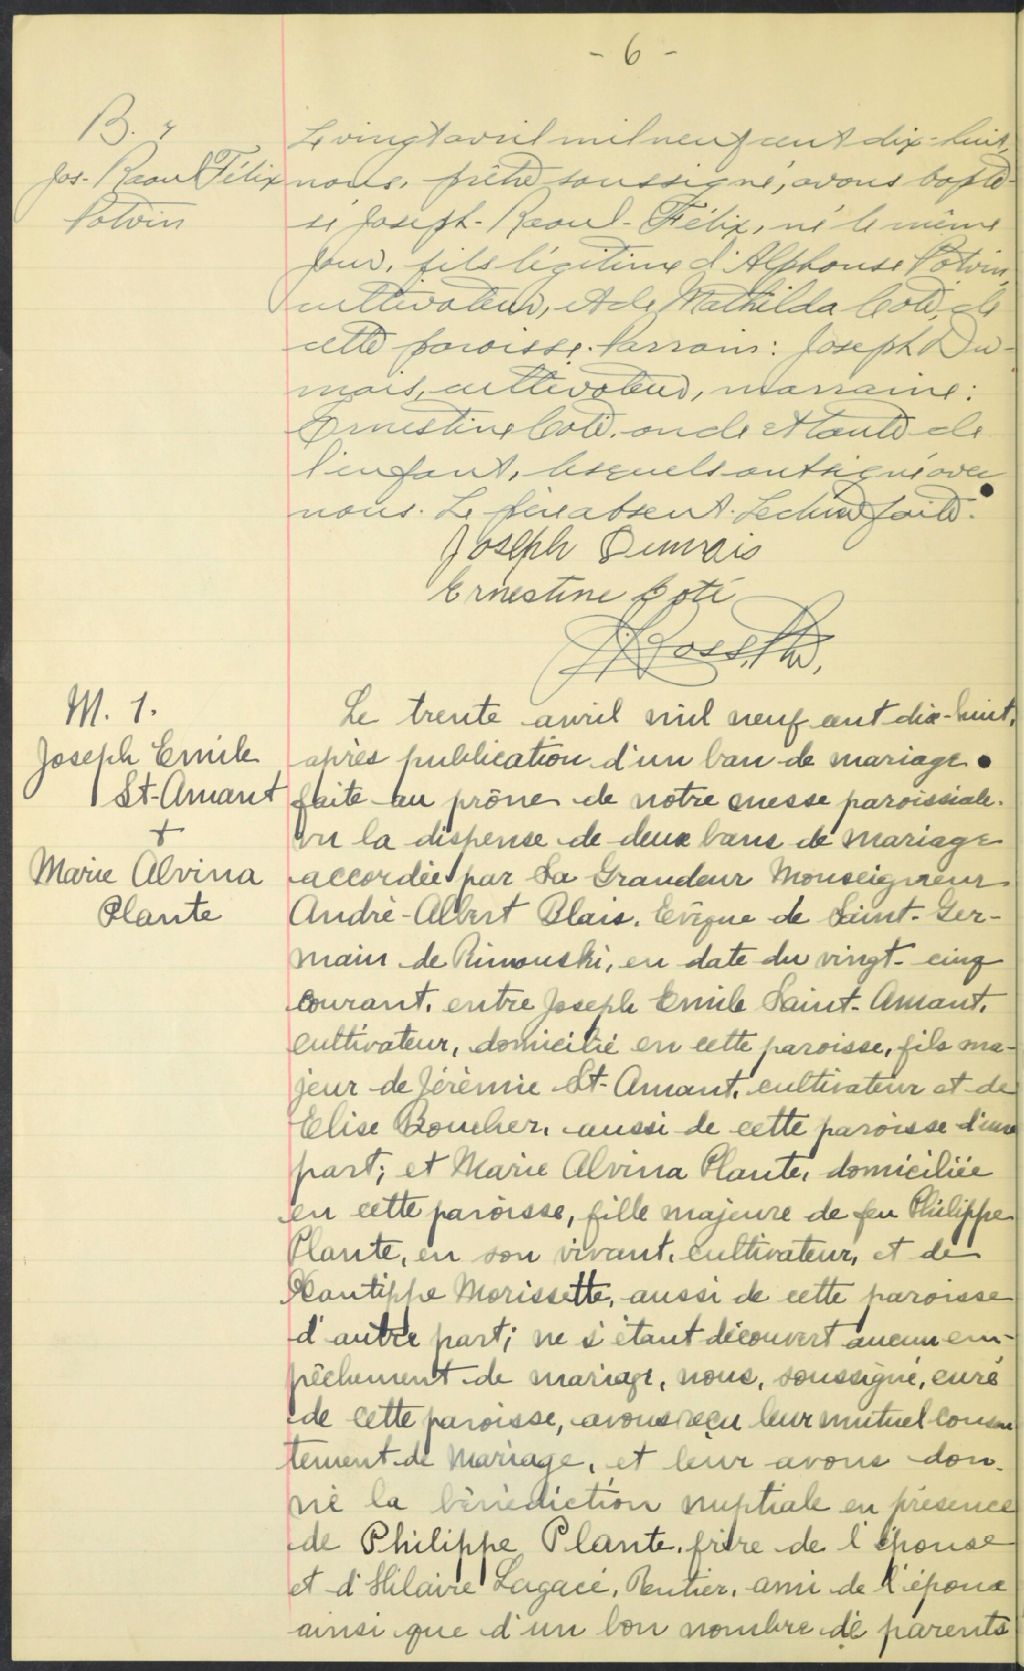 - 6 -
B. 4
Jos. Raoul Félix
Potvin
Le vingt avril mil neuf cent dix-huit,
nous, prêtre soussigné, avons bapti-
sé Joseph-Raoul-Félix, né le même
jour, fils légitime d'Alphonse Potvin,
cultivateur, et de Mathilda Coté, de
cette paroisse. Parrain: Joseph Du-
mais, cultivateur, marraine:
Ernestine Coté, oncle et tante de
l'enfant, lesquels ont signé avec
nous. Le père absent. Lecture faite.
Joseph Dumais
Ernestine Coté
Ross, Ptre,
M. 1.
Joseph Emile
St-Amant
+
Marie Alvina
Plante
Le trente avril mil neuf cent dix-huit,
après publication d'un ban de mariage
faite au prône de notre messe paroissiale,
vu la dispense de deux bans de mariage
accordée par Sa Grandeur Monseigneur
André-Albert Blais, Evêque de Saint-Ger-
main de Rimouski, en date du vingt-cinq
courant, entre Joseph Emile Saint-Amant,
cultivateur, domicilié en cette paroisse, fils ma-
jeur de Jérémie St-Amant, cultivateur et de
Elise Boucher, aussi de cette paroisse d'une
part; et Marie Alvina Plante, domiciliée
en cette paroisse, fille majeure de feu Philippe
Plante, en son vivant, cultivateur, et de
Xantippe Morissette, aussi de cette paroisse
d'autre part; ne s'étant découvert aucun em-
pêchement de mariage, nous, soussigné, curé
de cette paroisse, avons reçu leur mutuel consen
tement de mariage, et leur avons don-
né la bénédiction nuptiale en présence
de Philippe Plante, frère de l'épouse
et d'Hilaire Lagacé, Rentier, ami de l'époux
ainsi que d'un bon nombre de parents